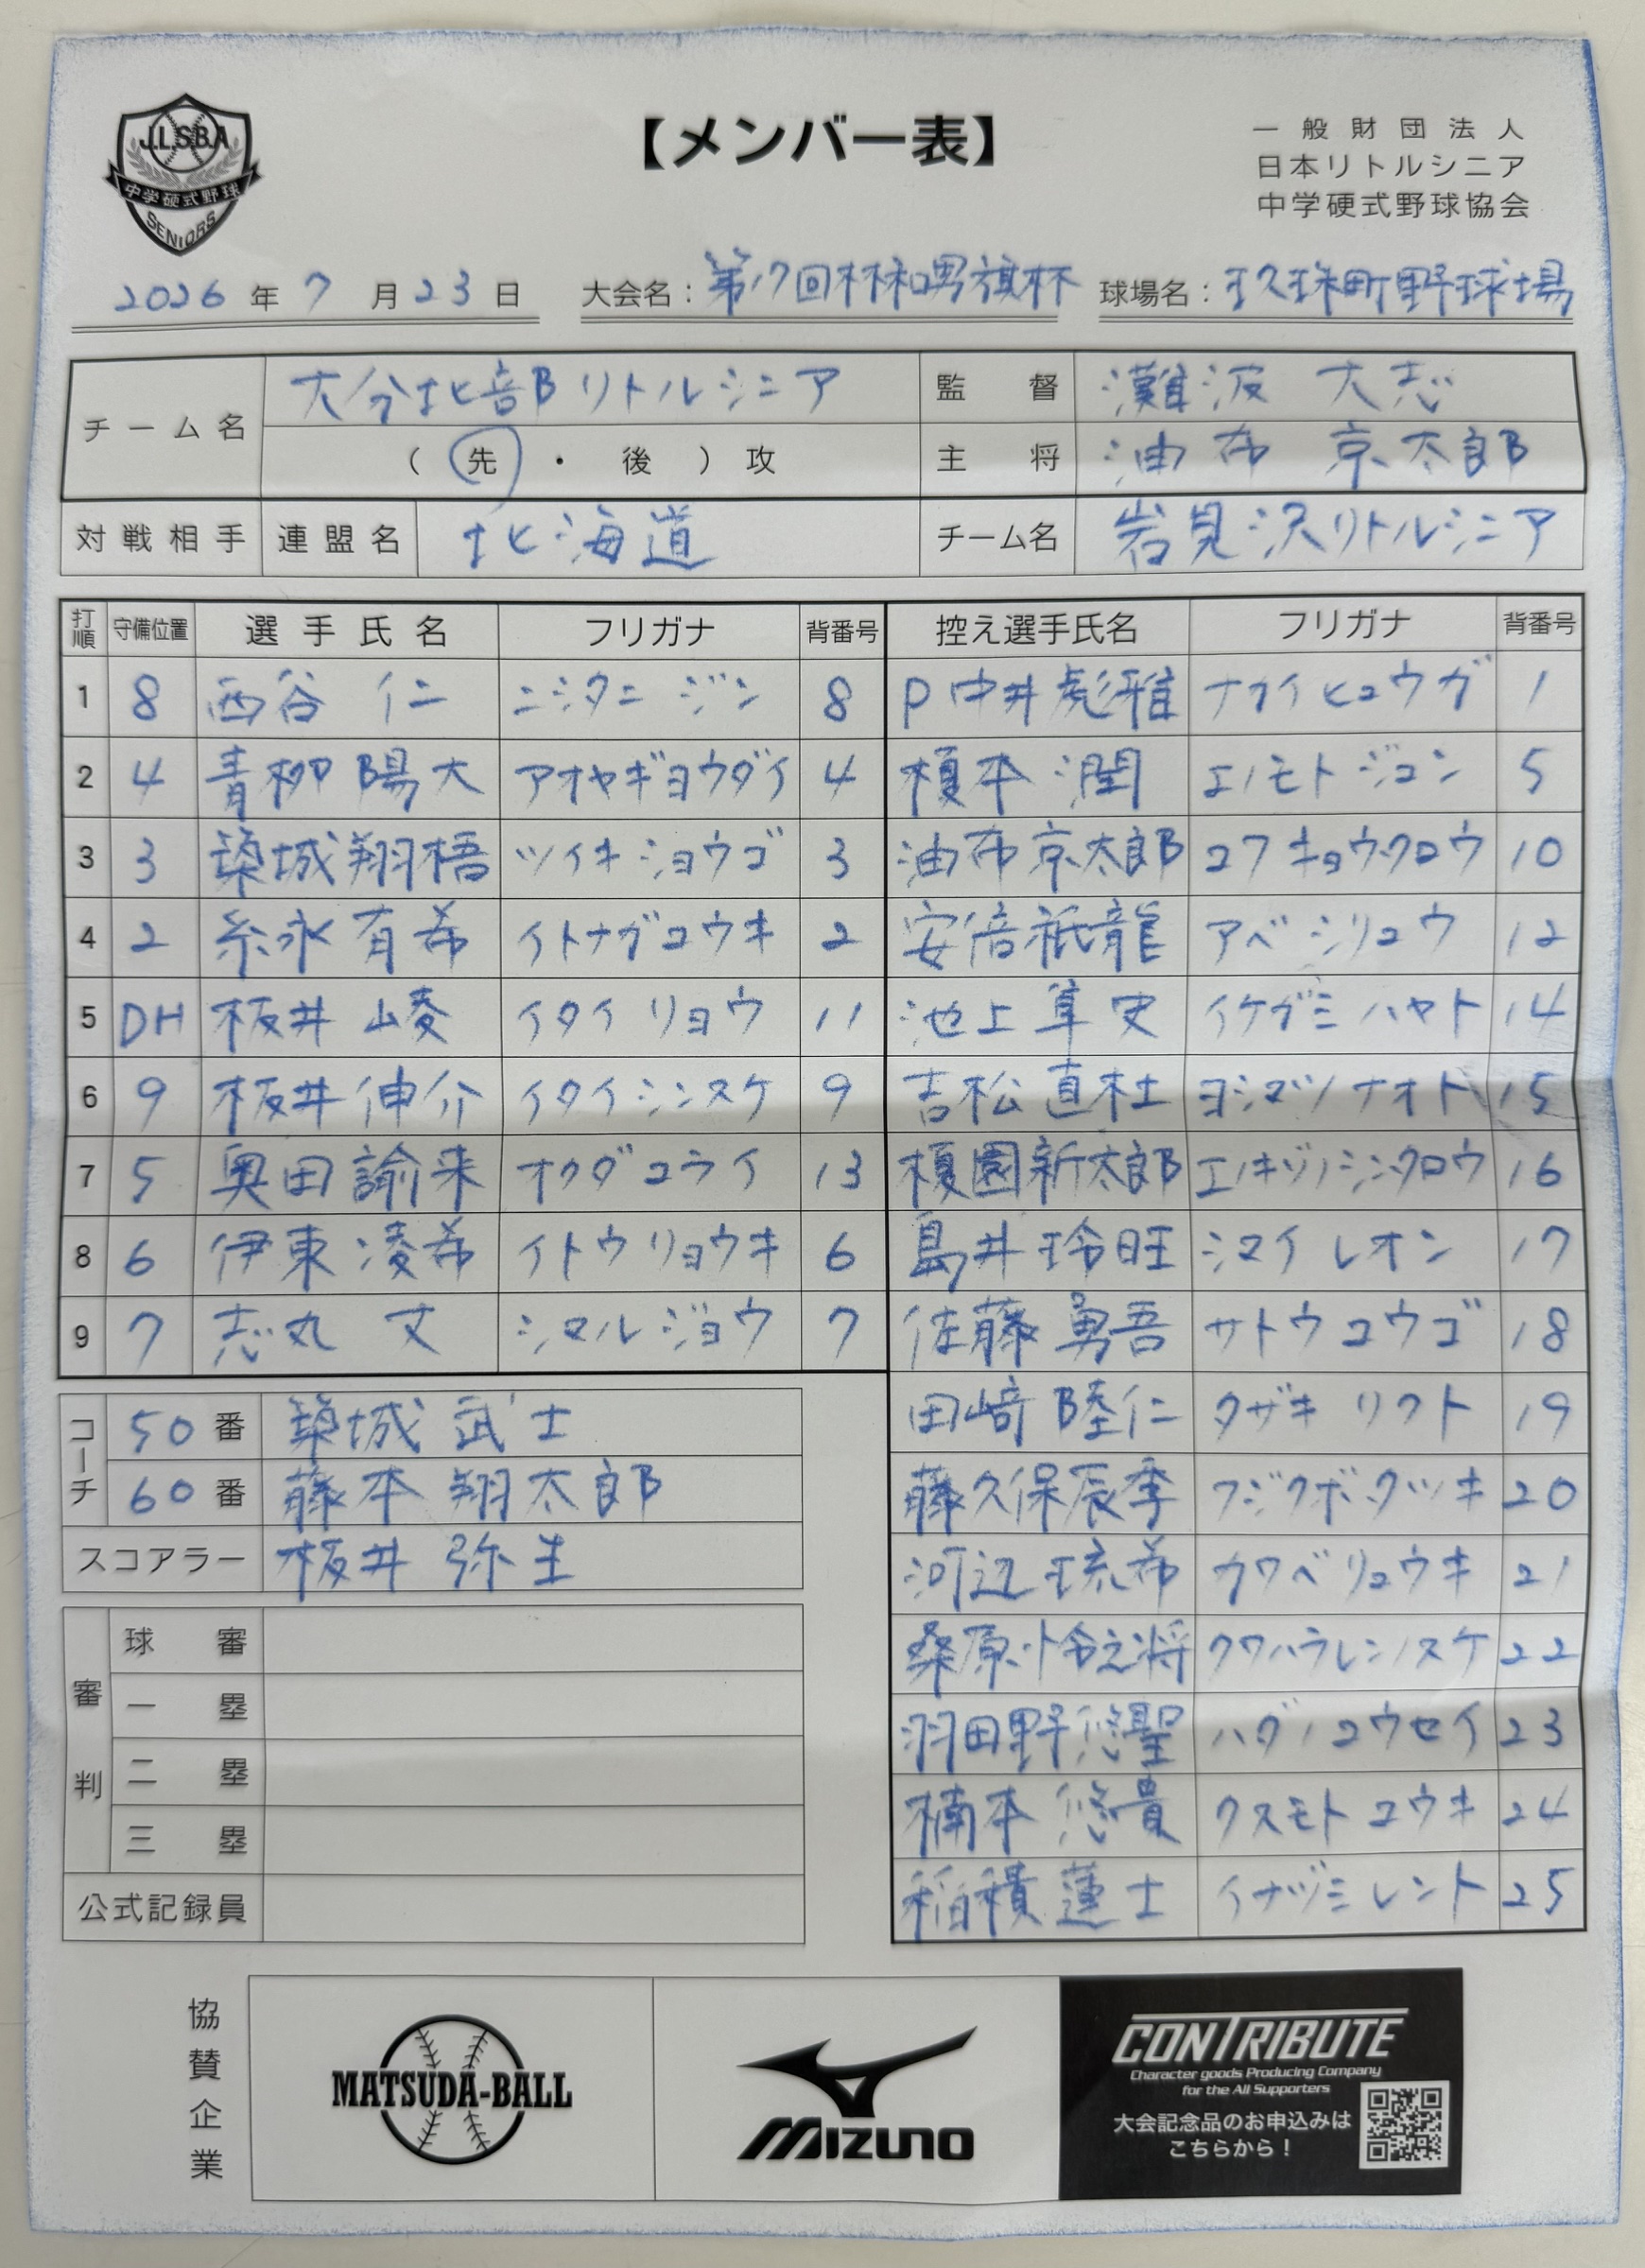 J.L.S.B.A
中学硬式野球
SENIORS
【メンバー表】
一般財団法人
日本リトルシニア
中学硬式野球協会
2026年7月23日 大会名：第17回林和男旗杯 球場名：玖珠町野球場
チーム名 大分北部リトルシニア 監督 灘波 大志
（先・後）攻 主将 油布 京太郎
対戦相手 連盟名 北海道 チーム名 岩見沢リトルシニア
打順 守備位置 選手氏名 フリガナ 背番号 控え選手氏名 フリガナ 背番号
1 8 西谷 仁 ニシタニ ジン 8 P 中井彪雅 ナカイ ヒュウガ 1
2 4 青柳 陽大 アオヤギヨウダイ 4 榎本 潤 エノモト ジュン 5
3 3 築城翔梧 ツイキ ショウゴ 3 油布京太郎 ユフ キョウタロウ 10
4 2 糸永 有希 イトナガユウキ 2 安倍祇龍 アベ シリュウ 12
5 DH 板井 崚 イタイ リョウ 11 池上隼史 イケガミ ハヤト 14
6 9 板井 伸介 イタイ シンスケ 9 吉松直杜 ヨシマツ ナオト 15
7 5 奥田 諭来 オクダ ユライ 13 榎園新太郎 エノキゾノシンタロウ 16
8 6 伊東 凌希 イトウ リョウキ 6 島井 玲旺 シマイ レオン 17
9 7 志丸 丈 シマル ジョウ 7 佐藤 勇吾 サトウ ユウゴ 18
田﨑 陸仁 タザキ リクト 19
藤久保辰季 フジクボ タツキ 20
河辺 琉希 カワベ リュウキ 21
桑原怜之将 クワハラレンノスケ 22
羽田野悠聖 ハダノ ユウセイ 23
楠本 悠貴 クスモト ユウキ 24
稲積 蓮士 イナヅミ レント 25
コーチ 50番 築城 武士
60番 藤本 翔太郎
スコアラー 板井 弥生
審判 球審
一塁
二塁
三塁
公式記録員
協賛企業
MATSUDA-BALL
MIZUNO
CONTRIBUTE
Character goods Producing Company
for the All Supporters
大会記念品のお申込みは
こちらから！